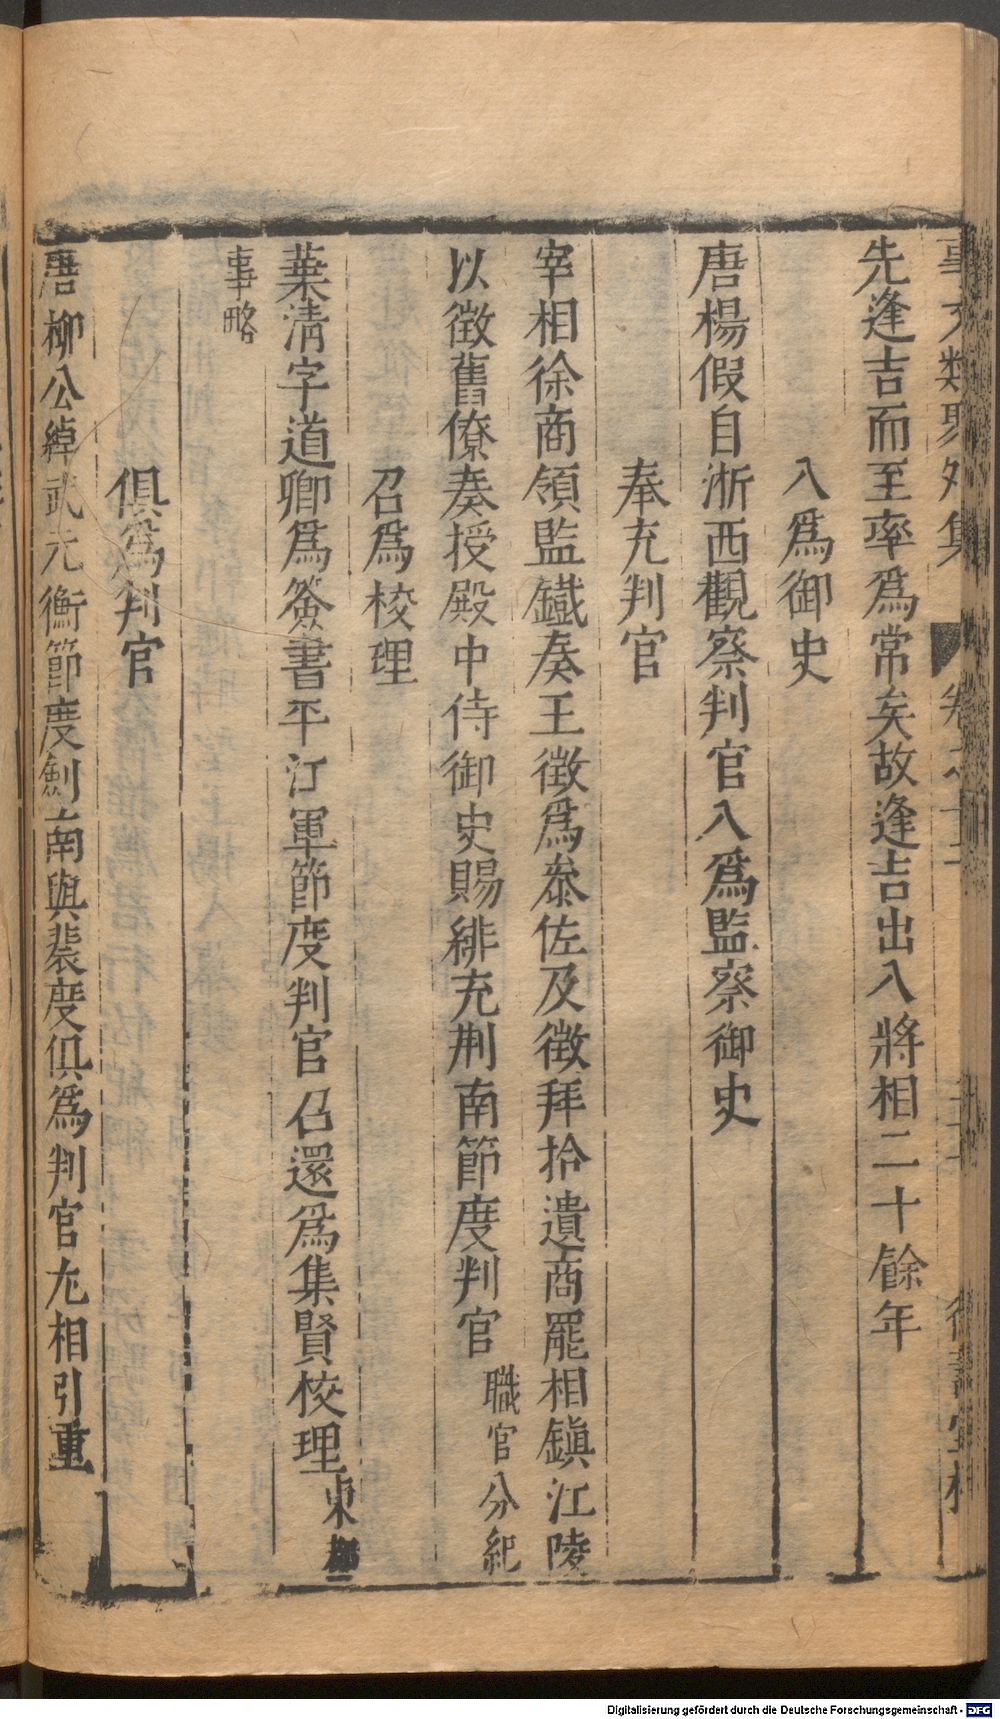 事文類聚外集
先逢吉而至率爲常矣故逢吉出入將相二十餘年
入爲御史
唐楊假自浙西觀察判官入爲監察御史
奉充判官
宰相徐商領監鐵奏王徴爲叅佐及徴拜拾遺商罷相鎮江陵
以徴舊僚奏授殿中侍御史賜緋充荆南節度判官 職官分紀
召爲校理
葉清字道卿爲簽書平江軍節度判官召還爲集賢校理 東都
事略
俱爲判官
唐柳公綽武元衡節度劍南與裴度俱爲判官尢相引重
Digitalisierung gefördert durch die Deutsche Forschungsgemeinschaft - DFG